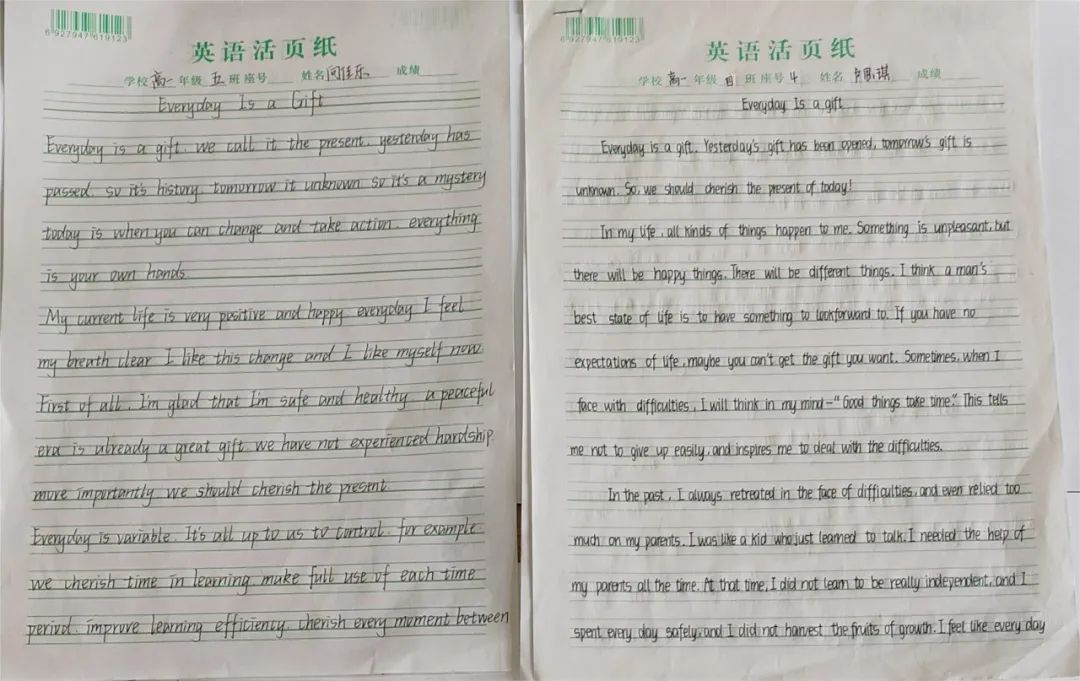 6927947619123
英语活页纸
学校高一年级五班座号 姓名闫佳乐 成绩
Everyday Is a Gift
Everyday is a gift. we call it the present. yesterday has
passed. so it's history. tomorrow it unknown so it's a mystery
today is when you can change and take action. everything
is your own hands.
My current life is very positive and happy everyday I feel
my breath clear I like this change and I like myself now.
First of all. I'm glad that I'm safe and healthy a peaceful
era is already a great gift we have not experienced hardship.
more importantly we should cherish the present.
Everyday is variable. It's all up to us to control. for example.
we cherish time in learning make full use of each time
period. improve learning efficiency. cherish every moment between
6927947619123
英语活页纸
学校高一年级 班座号4 姓名 成绩
Everyday Is a gift
Everyday is a gift. Yesterday's gift has been opened, tomorrow's gift is
unknown. So, we should cherish the present of today!
In my life, all kinds of things happen to me. Something is unpleasant, but
there will be happy things. There will be different things. I think a man's
best state of life is to have something to lookforward to. If you have no
expectations of life, maybe you can't get the gift you want. Sometimes, when I
face with difficulties, I will think in my mind-"Good things take time". This tells
me not to give up easily, and inspires me to deal with the difficulties.
In the past, I always retreated in the face of difficulties, and even relied too
much on my parents. I was like a kid who just learned to talk. I needed the help of
my parents all the time. At that time, I did not learn to be really independent, and I
spent every day safely, and I did not harvest the fruits of growth. I feel like every day